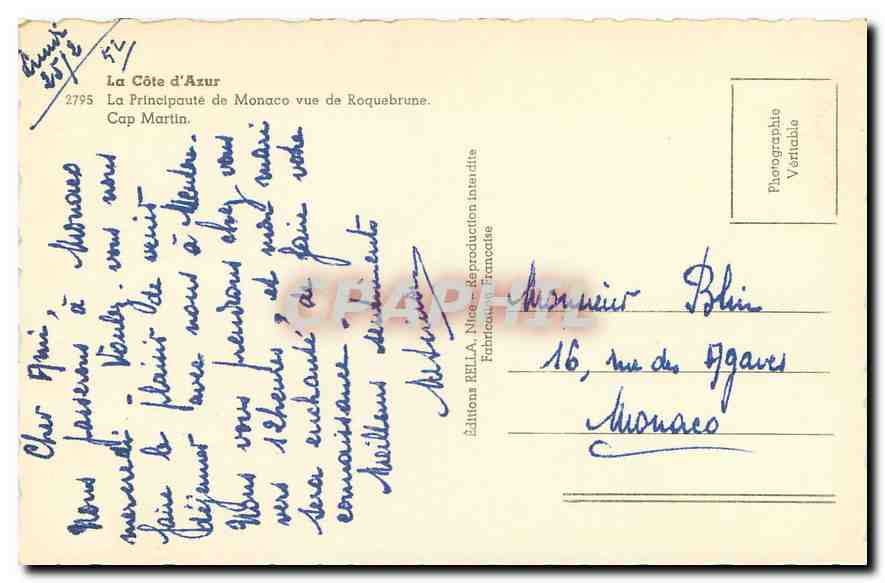 25/2
52/
La Côte d'Azur
2795 La Principauté de Monaco vue de Roquebrune.
Cap Martin.
Cher Ami,
Nous passerons à Monaco
mercredi - Voulez-vous nous
faire le plaisir de venir
déjeuner avec nous à Menton.
Nous vous prendrons chez vous
vers 12 heures, et mon mari
sera enchanté à faire votre
connaissance.
Meilleurs sentiments
Éditions RELLA, Nice - Reproduction interdite
Fabrication Française
Photographie
Véritable
Monsieur Blin
16, rue des Agaves
Monaco
CPAPHIL